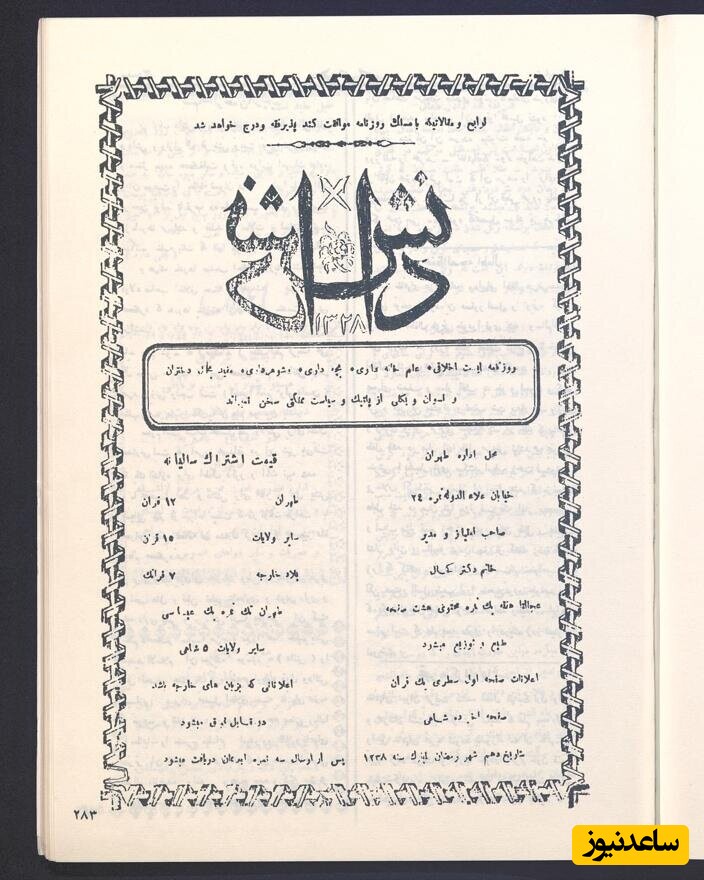 لوایح و مقالاتیکه با مسلك روزنامه موافقت کند پذیرفته و درج خواهد شد
دانش
۱۳۲۸
روزنامه ایست اخلاقی علم خانه داری بچه داری شوهرداری مفید بحال دختران
و نسوان و بکلی از پلتیك و سیاست مملکتی سخن نمیراند
محل اداره طهران
خیابان علاءالدوله نمره ۲٤
صاحب امتیاز و مدیر
خانم دکتر کحال
عجالتا هفته یك نمره محتوی هشت صفحه
طبع و توزیع میشود
اعلانات صفحه اول سطری یك قران
صفحه آخر ده شاهی
بتاریخ دهم شهر رمضان سنه ۱۳۲۸
قیمت اشتراك سالیانه
طهران ۱۲ قران
سایر ولایات ۱۵ قران
بلاد خارجه ۷ فرانك
طهران تك نمره یك عباسی
سایر ولایات ۵ شاهی
اعلاناتی که بزبان های خارجه باشد
دو مقابل فوق میشود
پس از ارسال سه نمره آبونمان دریافت میشود
۲۸۳
ساعدنیوز